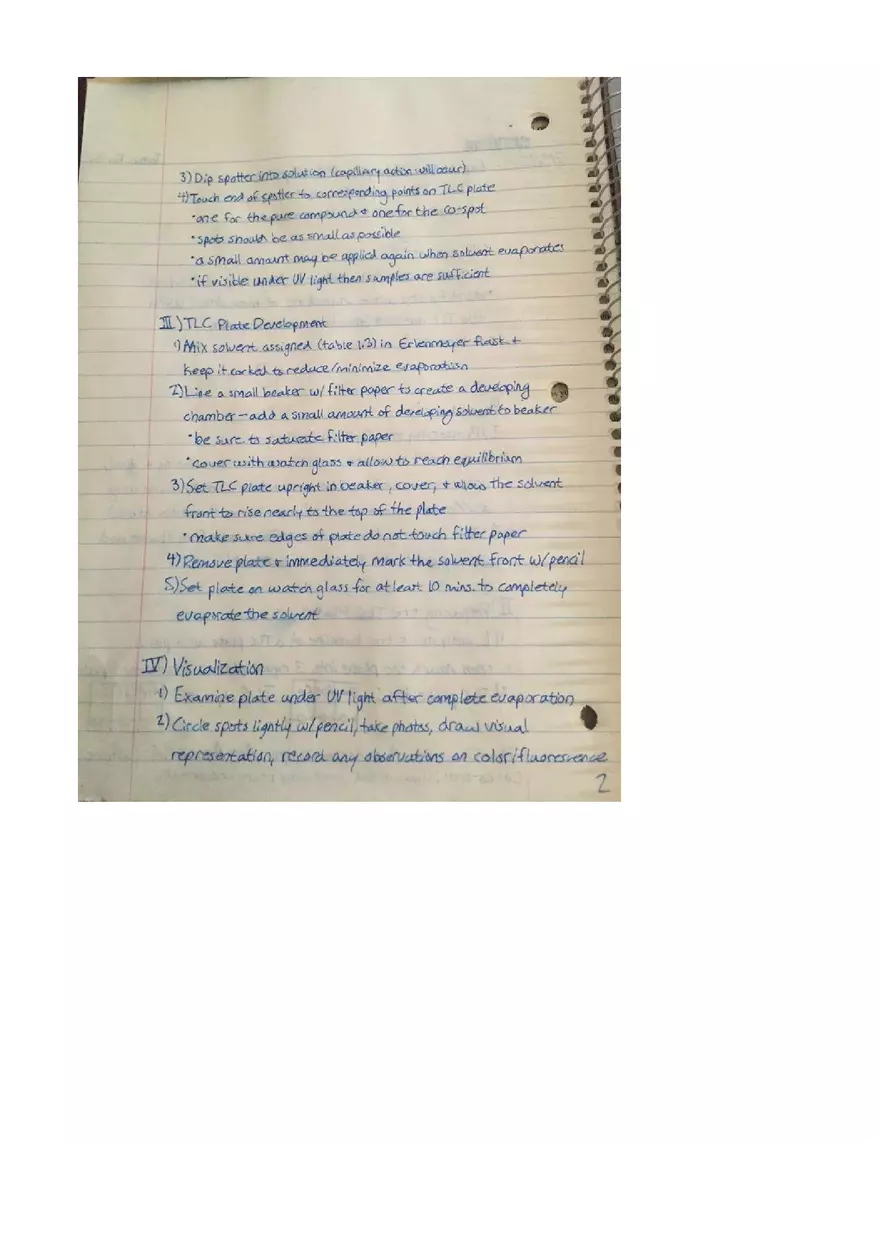 3) Dip spotter into solution (capillary action will occur)
4) Touch end of spotter to corresponding points on TLC plate
• one for the pure compound + one for the co-spot
• spots should be as small as possible
• a small amount may be applied again when solvent evaporates
• if visible under UV light then samples are sufficient
III.) TLC Plate Development
1) Mix solvent assigned (table 1.3) in Erlenmeyer flask +
keep it corked to reduce/minimize evaporation
2) Line a small beaker w/ filter paper to create a developing
chamber - add a small amount of developing solvent to beaker
• be sure to saturate filter paper
• cover with watch glass + allow to reach equilibrium
3) Set TLC plate upright in beaker, cover, + allow the solvent
front to rise nearly to the top of the plate
• make sure edges of plate do not touch filter paper
4) Remove plate + immediately mark the solvent front w/ pencil
5) Set plate on watch glass for at least 10 mins. to completely
evaporate the solvent
IV) Visualization
1) Examine plate under UV light after complete evaporation
2) Circle spots lightly w/ pencil, take photos, draw visual
representation, record any observations on color/fluorescence
2